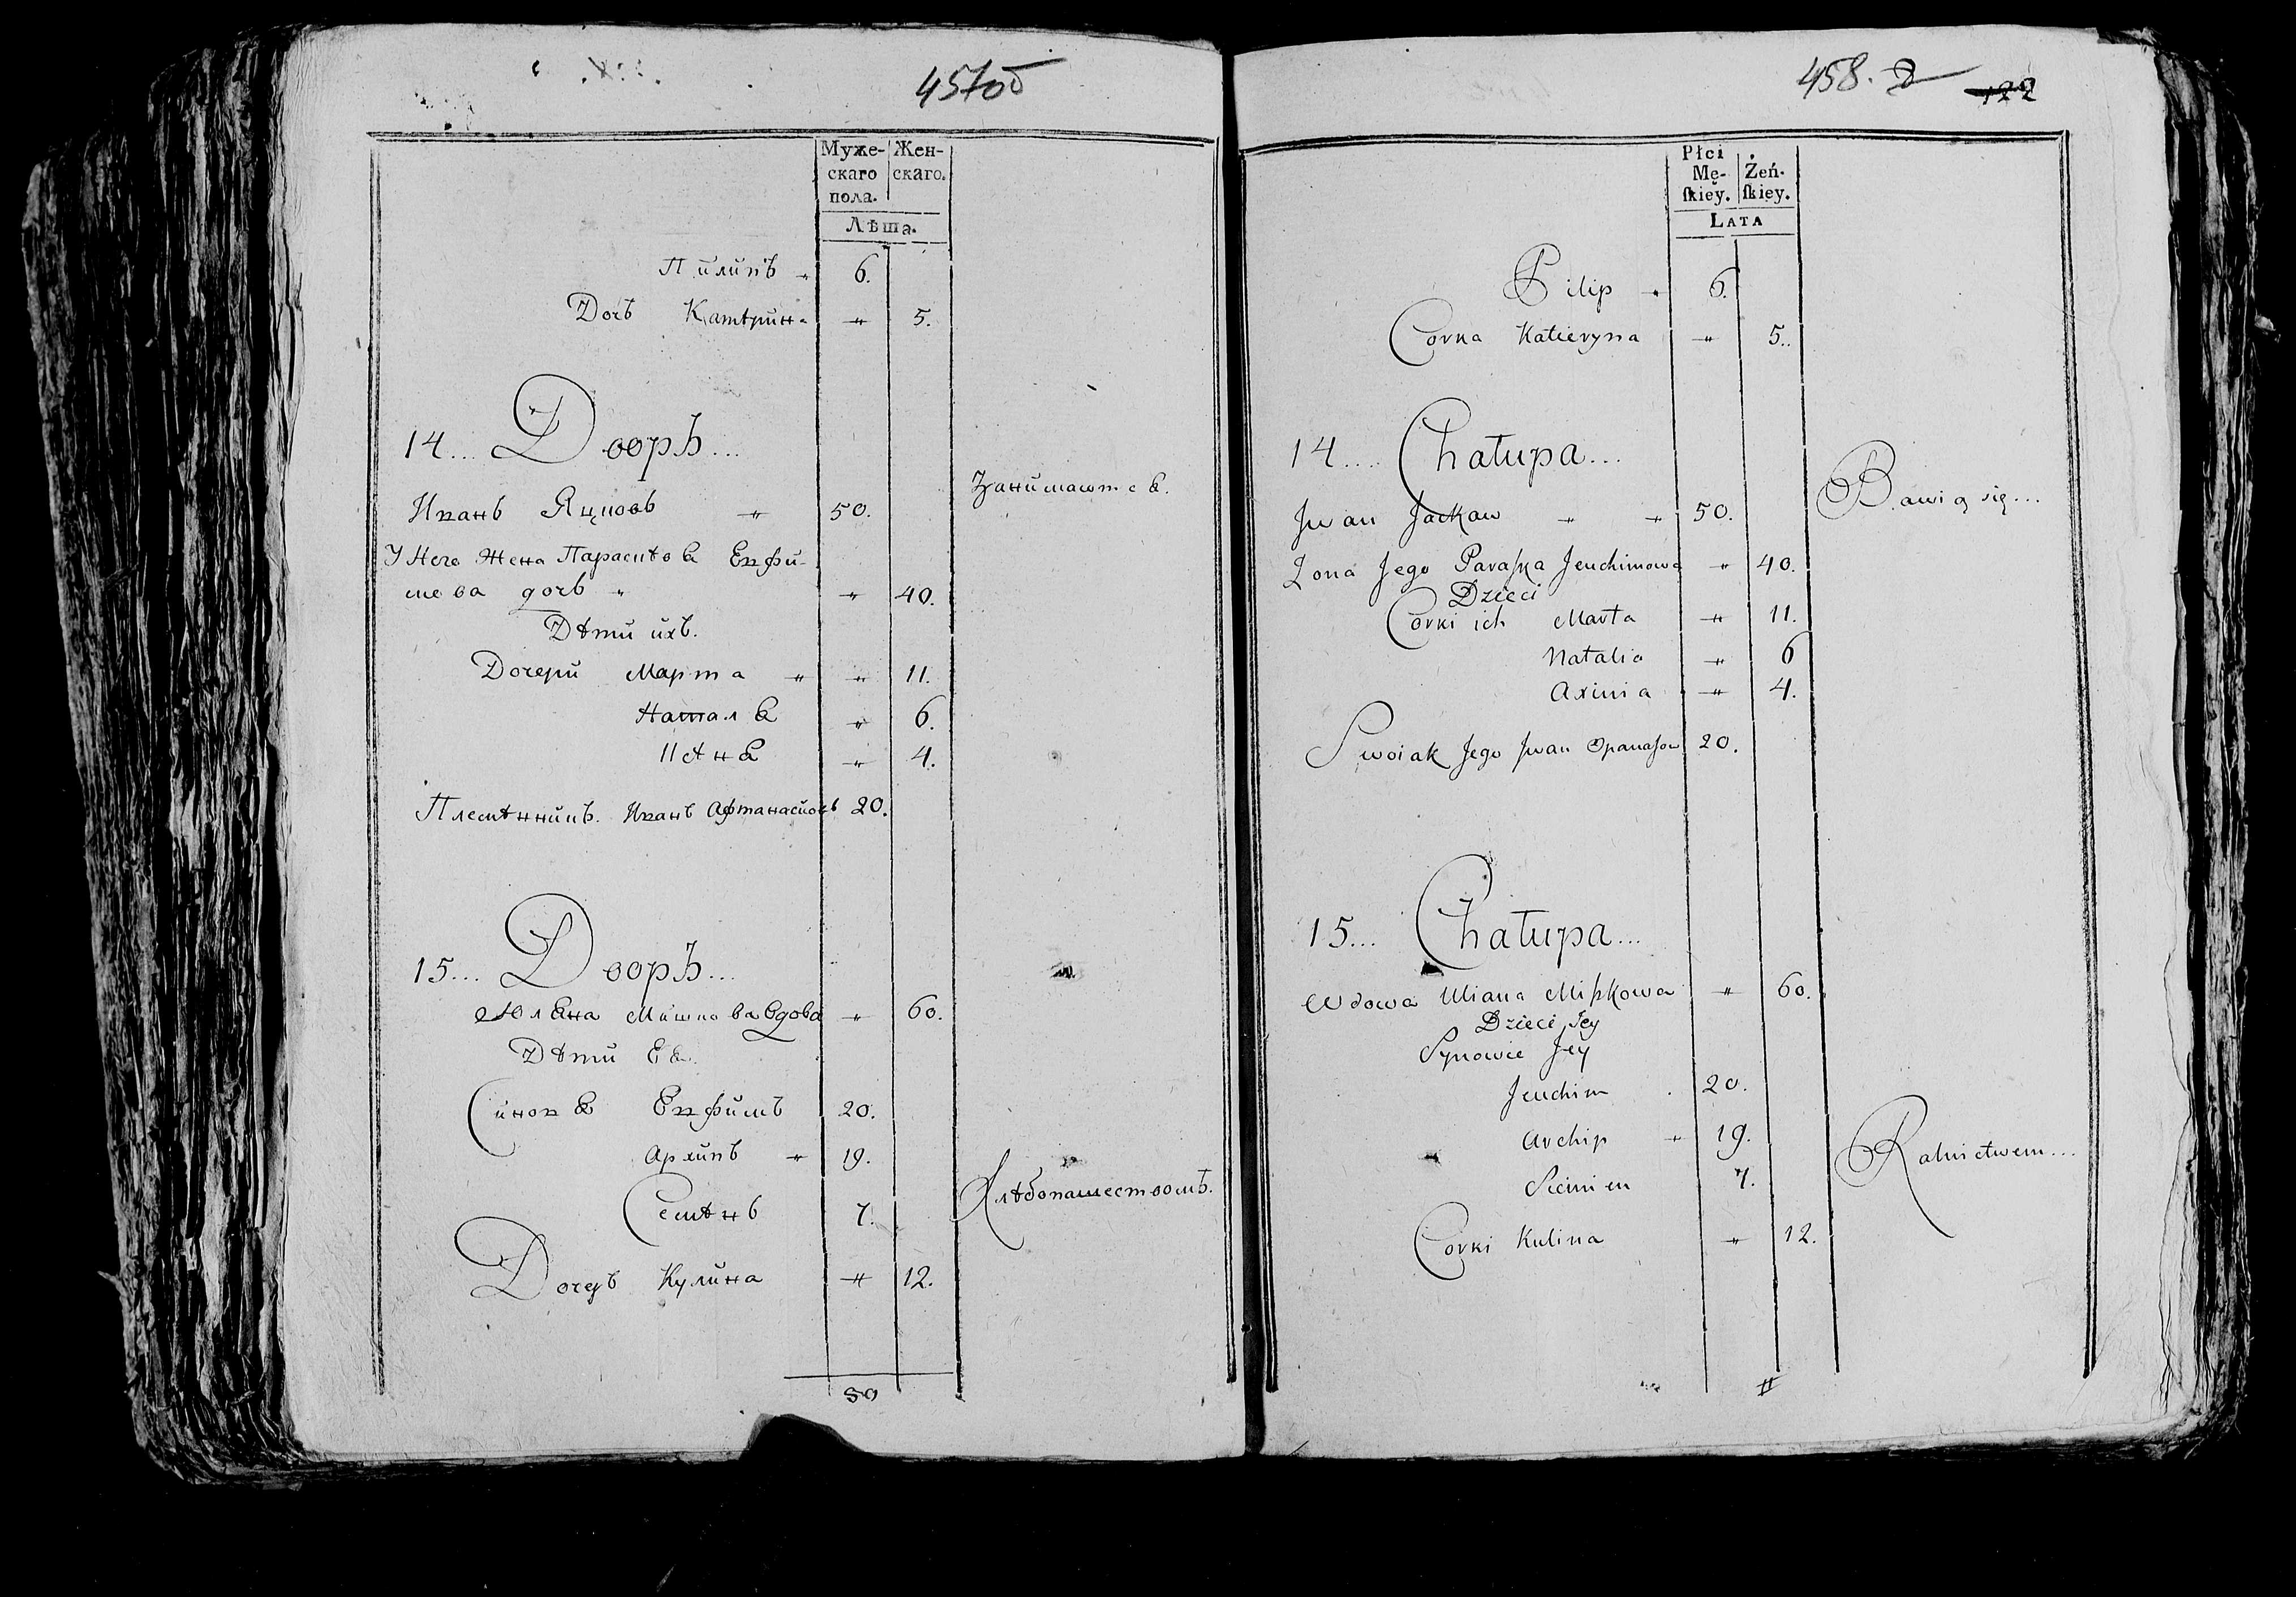 457об
Муже- Жен-
скаго скаго.
пола.
Лѣта.
Пилипъ „ 6.
Дочь Катѣрина „ 5.
14... Дворъ...
Занимаются.
Иванъ Яцковъ „ 50.
У Него Жена Парасковя Евфи-
мова дочь „ „ 40.
Дѣти ихъ.
Дочери Марта „ „ 11.
Наталя „ 6.
„ 4.
Племѣнникъ. Иванъ Афтанасиовъ 20.
15... Дворъ...
Юляна Мишкова вдова „ 60.
Дѣти Ея.
Синовя Евфимъ 20.
Архипъ „ 19.
Хлѣбопашествомъ.
Семѣнъ 7.
Дочеръ Кулина „ 12.
458.
122
Płci
Mę- Żeń-
ſkiey. ſkiey.
Lata
Pilip „ 6.
Corka Katieryna „ 5..
14.... Chałupa...
Bawią się...
Jwan Jackow „ „ 50.
Zona Jego Paraſka Jeuchimowa „ 40.
Dzieci
Corki ich Marta „ 11.
Natalia „ 6
Axinia „ 4.
Swoiak Jego Jwan Opanaſow 20.
15... Chałupa...
Wdowa Uliana Miſzkowa „ 60.
Dzieci Jey
Synowie Jey
Jeuchim . 20.
Archip „ 19.
Rolnictwem...
Siemien 7.
Corki Kulina „ 12.